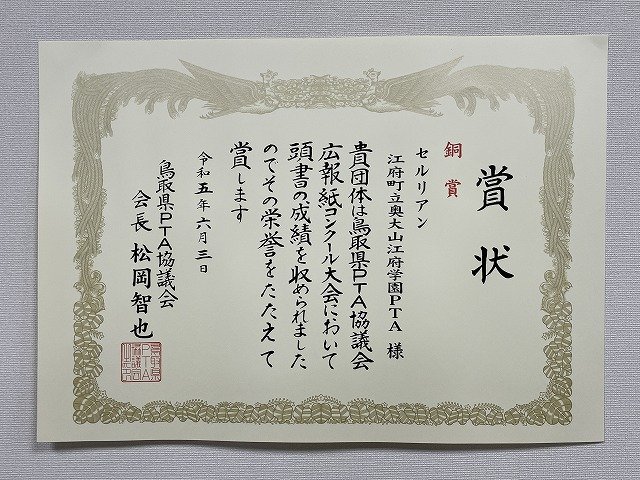 賞状
銅賞
セルリアン
江府町立奥大山江府学園PTA 様
貴団体は鳥取県PTA協議会
広報紙コンクール大会において
頭書の成績を収められました
のでその栄誉をたたえて
賞します
令和五年六月三日
鳥取県PTA協議会
会長 松岡智也